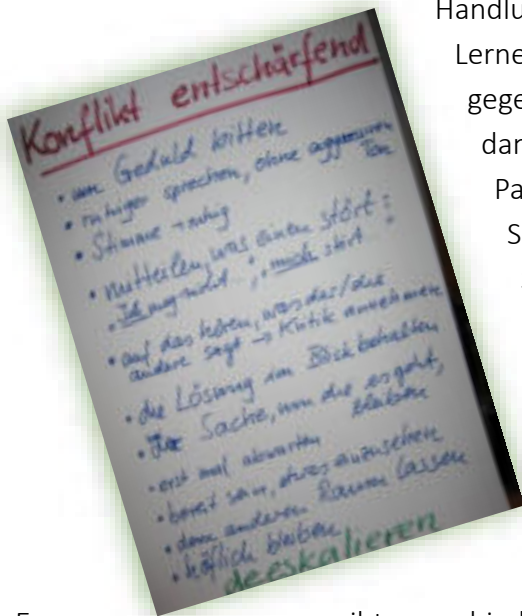 Handlu
Lerne
gege
dar
Pa
S
Konflikt entschärfend
• um Geduld bitten
• ruhiger sprechen, ohne aggressiven
Ton
• Stimme → ruhig
• mitteilen, was einen stört:
• Ich mag nicht ; mich stört
• auf das hören, was der/die
andere sagt → Kritik annehmen
• die Lösung im Blick behalten
• Sache, um die es geht,
bleiben
• erst mal abwarten
• bereit sein, etwas einzusehen
• dem anderen Raum lassen
• höflich bleiben
deeskalieren